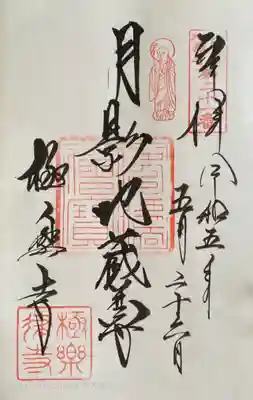 奉拝 令和五年
五月二十六日
月影地蔵尊
極楽寺
極樂律寺